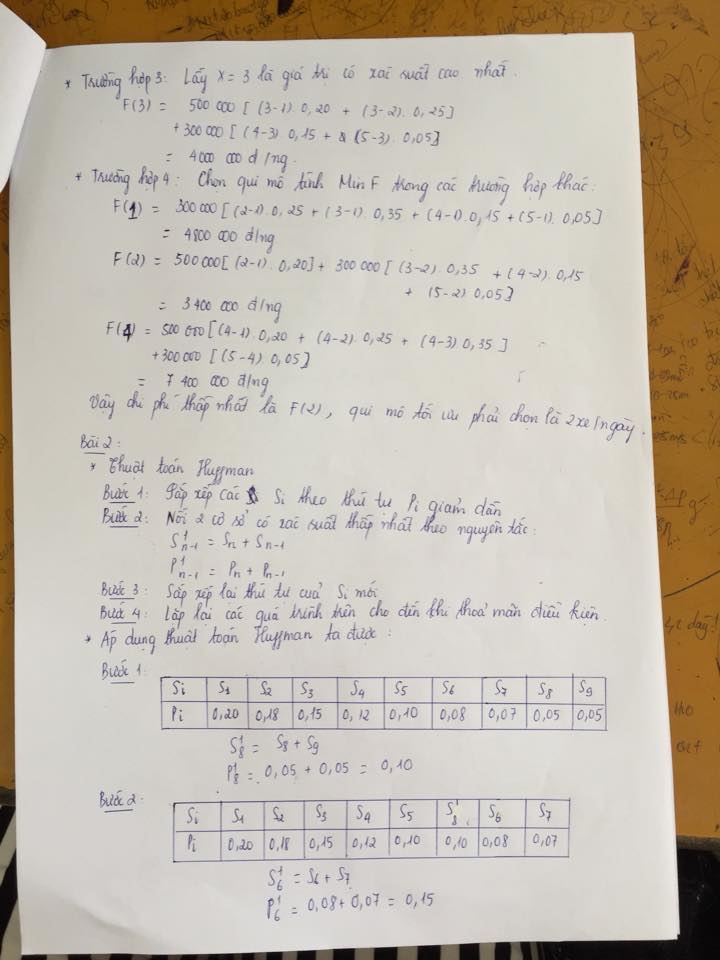 * Trường hợp 3: Lấy X = 3 là giá trị có xác suất cao nhất.
F(3) = 500 000 [(3-1). 0,20 + (3-2). 0,25]
+ 300 000 [(4-3) 0,15 + (5-3). 0,05]
= 4000 000 đ/ng.
* Trường hợp 4: Chọn qui mô tính Min F trong các trường hợp khác:
F(1) = 300 000 [(2-1). 0,25 + (3-1). 0,35 + (4-1). 0,15 + (5-1). 0,05]
= 4800 000 đ/ng
F(2) = 500 000 [(2-1). 0,20] + 300 000 [(3-2). 0,35 + (4-2). 0,15
+ (5-2) 0,05]
= 3 400 000 đ/ng
F(4) = 500 000 [(4-1). 0,20 + (4-2). 0,25 + (4-3) 0,35]
+ 300 000 [(5-4) 0,05]
= 7 400 000 đ/ng
Vậy chi phí thấp nhất là F(2), qui mô tối ưu phải chọn là 2 xe/ngày.
Bài 2:
* Thuật toán Huffman
Bước 1: Sắp xếp các Si theo thứ tự Pi giảm dần
Bước 2: Nối 2 cơ sở có xác suất thấp nhất theo nguyên tắc:
S¹n-1 = Sn + Sn-1
P¹n-1 = Pn + Pn-1
Bước 3: Sắp xếp lại thứ tự của Si mới
Bước 4: Lặp lại các quá trình trên cho đến khi thoả mãn điều kiện.
* Áp dụng thuật toán Huffman ta được:
Bước 1:
Si S1 S2 S3 S4 S5 S6 S7 S8 S9
Pi 0,20 0,18 0,15 0,12 0,10 0,08 0,07 0,05 0,05
S¹8 = S8 + S9
P¹8 = 0,05 + 0,05 = 0,10
Bước 2:
Si S1 S2 S3 S4 S5 S¹8 S6 S7
Pi 0,20 0,18 0,15 0,12 0,10 0,10 0,08 0,07
S¹6 = S6 + S7
P¹6 = 0,08 + 0,07 = 0,15